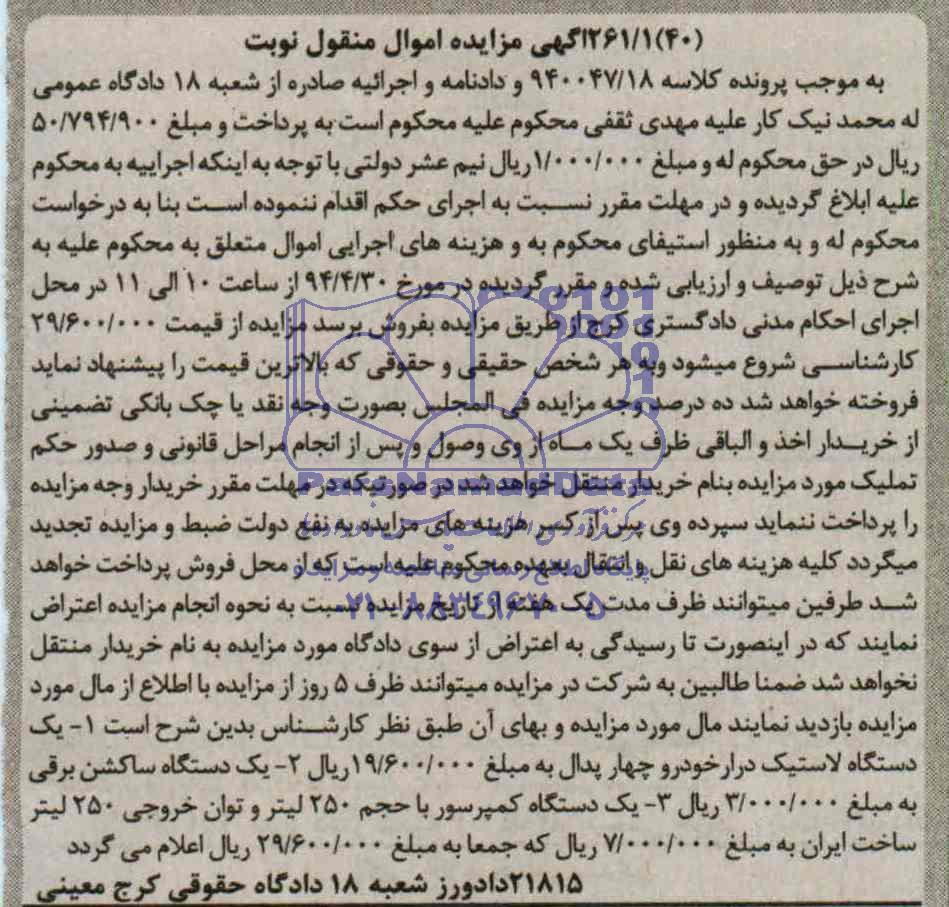 ۲۶۱/۱(۴۰)اگهی مزایده اموال منقول نوبت
به موجب پرونده کلاسه ۹۴۰۰۴۷/۱۸ و دادنامه و اجرائیه صادره از شعبه ۱۸ دادگاه عمومی
له محمد نیک کار علیه مهدی ثقفی محکوم علیه محکوم است به پرداخت و مبلغ ۵۰/۷۹۴/۹۰۰
ریال در حق محکوم له و مبلغ ۱/۰۰۰/۰۰۰ریال نیم عشر دولتی با توجه به اینکه اجراییه به محکوم
علیه ابلاغ گردیده و در مهلت مقرر نسبت به اجرای حکم اقدام ننموده است بنا به درخواست
محکوم له و به منظور استیفای محکوم به و هزینه های اجرایی اموال متعلق به محکوم علیه به
شرح ذیل توصیف و ارزیابی شده و مقرر گردیده در مورخ ۹۴/۴/۳۰ از ساعت ۱۰ الی ۱۱ در محل
اجرای احکام مدنی دادگستری کرج از طریق مزایده بفروش برسد مزایده از قیمت ۲۹/۶۰۰/۰۰۰
کارشناسی شروع میشود وبه هر شخص حقیقی و حقوقی که بالاترین قیمت را پیشنهاد نماید
فروخته خواهد شد ده درصد وجه مزایده فی المجلس بصورت وجه نقد یا چک بانکی تضمینی
از خریدار اخذ و الباقی ظرف یک ماه از وی وصول و پس از انجام مراحل قانونی و صدور حکم
تملیک مورد مزایده بنام خریدار منتقل خواهد شد در صورتیکه در مهلت مقرر خریدار وجه مزایده
را پرداخت ننماید سپرده وی پس از کسر هزینه های مزایده به نفع دولت ضبط و مزایده تجدید
میگردد کلیه هزینه های نقل و انتقال بعهده محکوم علیه است که از محل فروش پرداخت خواهد
شد طرفین میتوانند ظرف مدت یک هفته از تاریخ مزایده نسبت به نحوه انجام مزایده اعتراض
نمایند که در اینصورت تا رسیدگی به اعتراض از سوی دادگاه مورد مزایده به نام خریدار منتقل
نخواهد شد ضمنا طالبین به شرکت در مزایده میتوانند ظرف ۵ روز از مزایده با اطلاع از مال مورد
مزایده بازدید نمایند مال مورد مزایده و بهای آن طبق نظر کارشناس بدین شرح است ۱- یک
دستگاه لاستیک درارخودرو چهار پدال به مبلغ ۱۹/۶۰۰/۰۰۰ریال ۲- یک دستگاه ساکشن برقی
به مبلغ ۳/۰۰۰/۰۰۰ ریال ۳- یک دستگاه کمپرسور با حجم ۲۵۰ لیتر و توان خروجی ۲۵۰ لیتر
ساخت ایران به مبلغ ۷/۰۰۰/۰۰۰ ریال که جمعا به مبلغ ۲۹/۶۰۰/۰۰۰ ریال اعلام می گردد
۲۱۸۱۵دادورز شعبه ۱۸ دادگاه حقوقی کرج معینی
ParsNamadData
۰۲۱-۸۸۳۴۹۶۷۰-۵